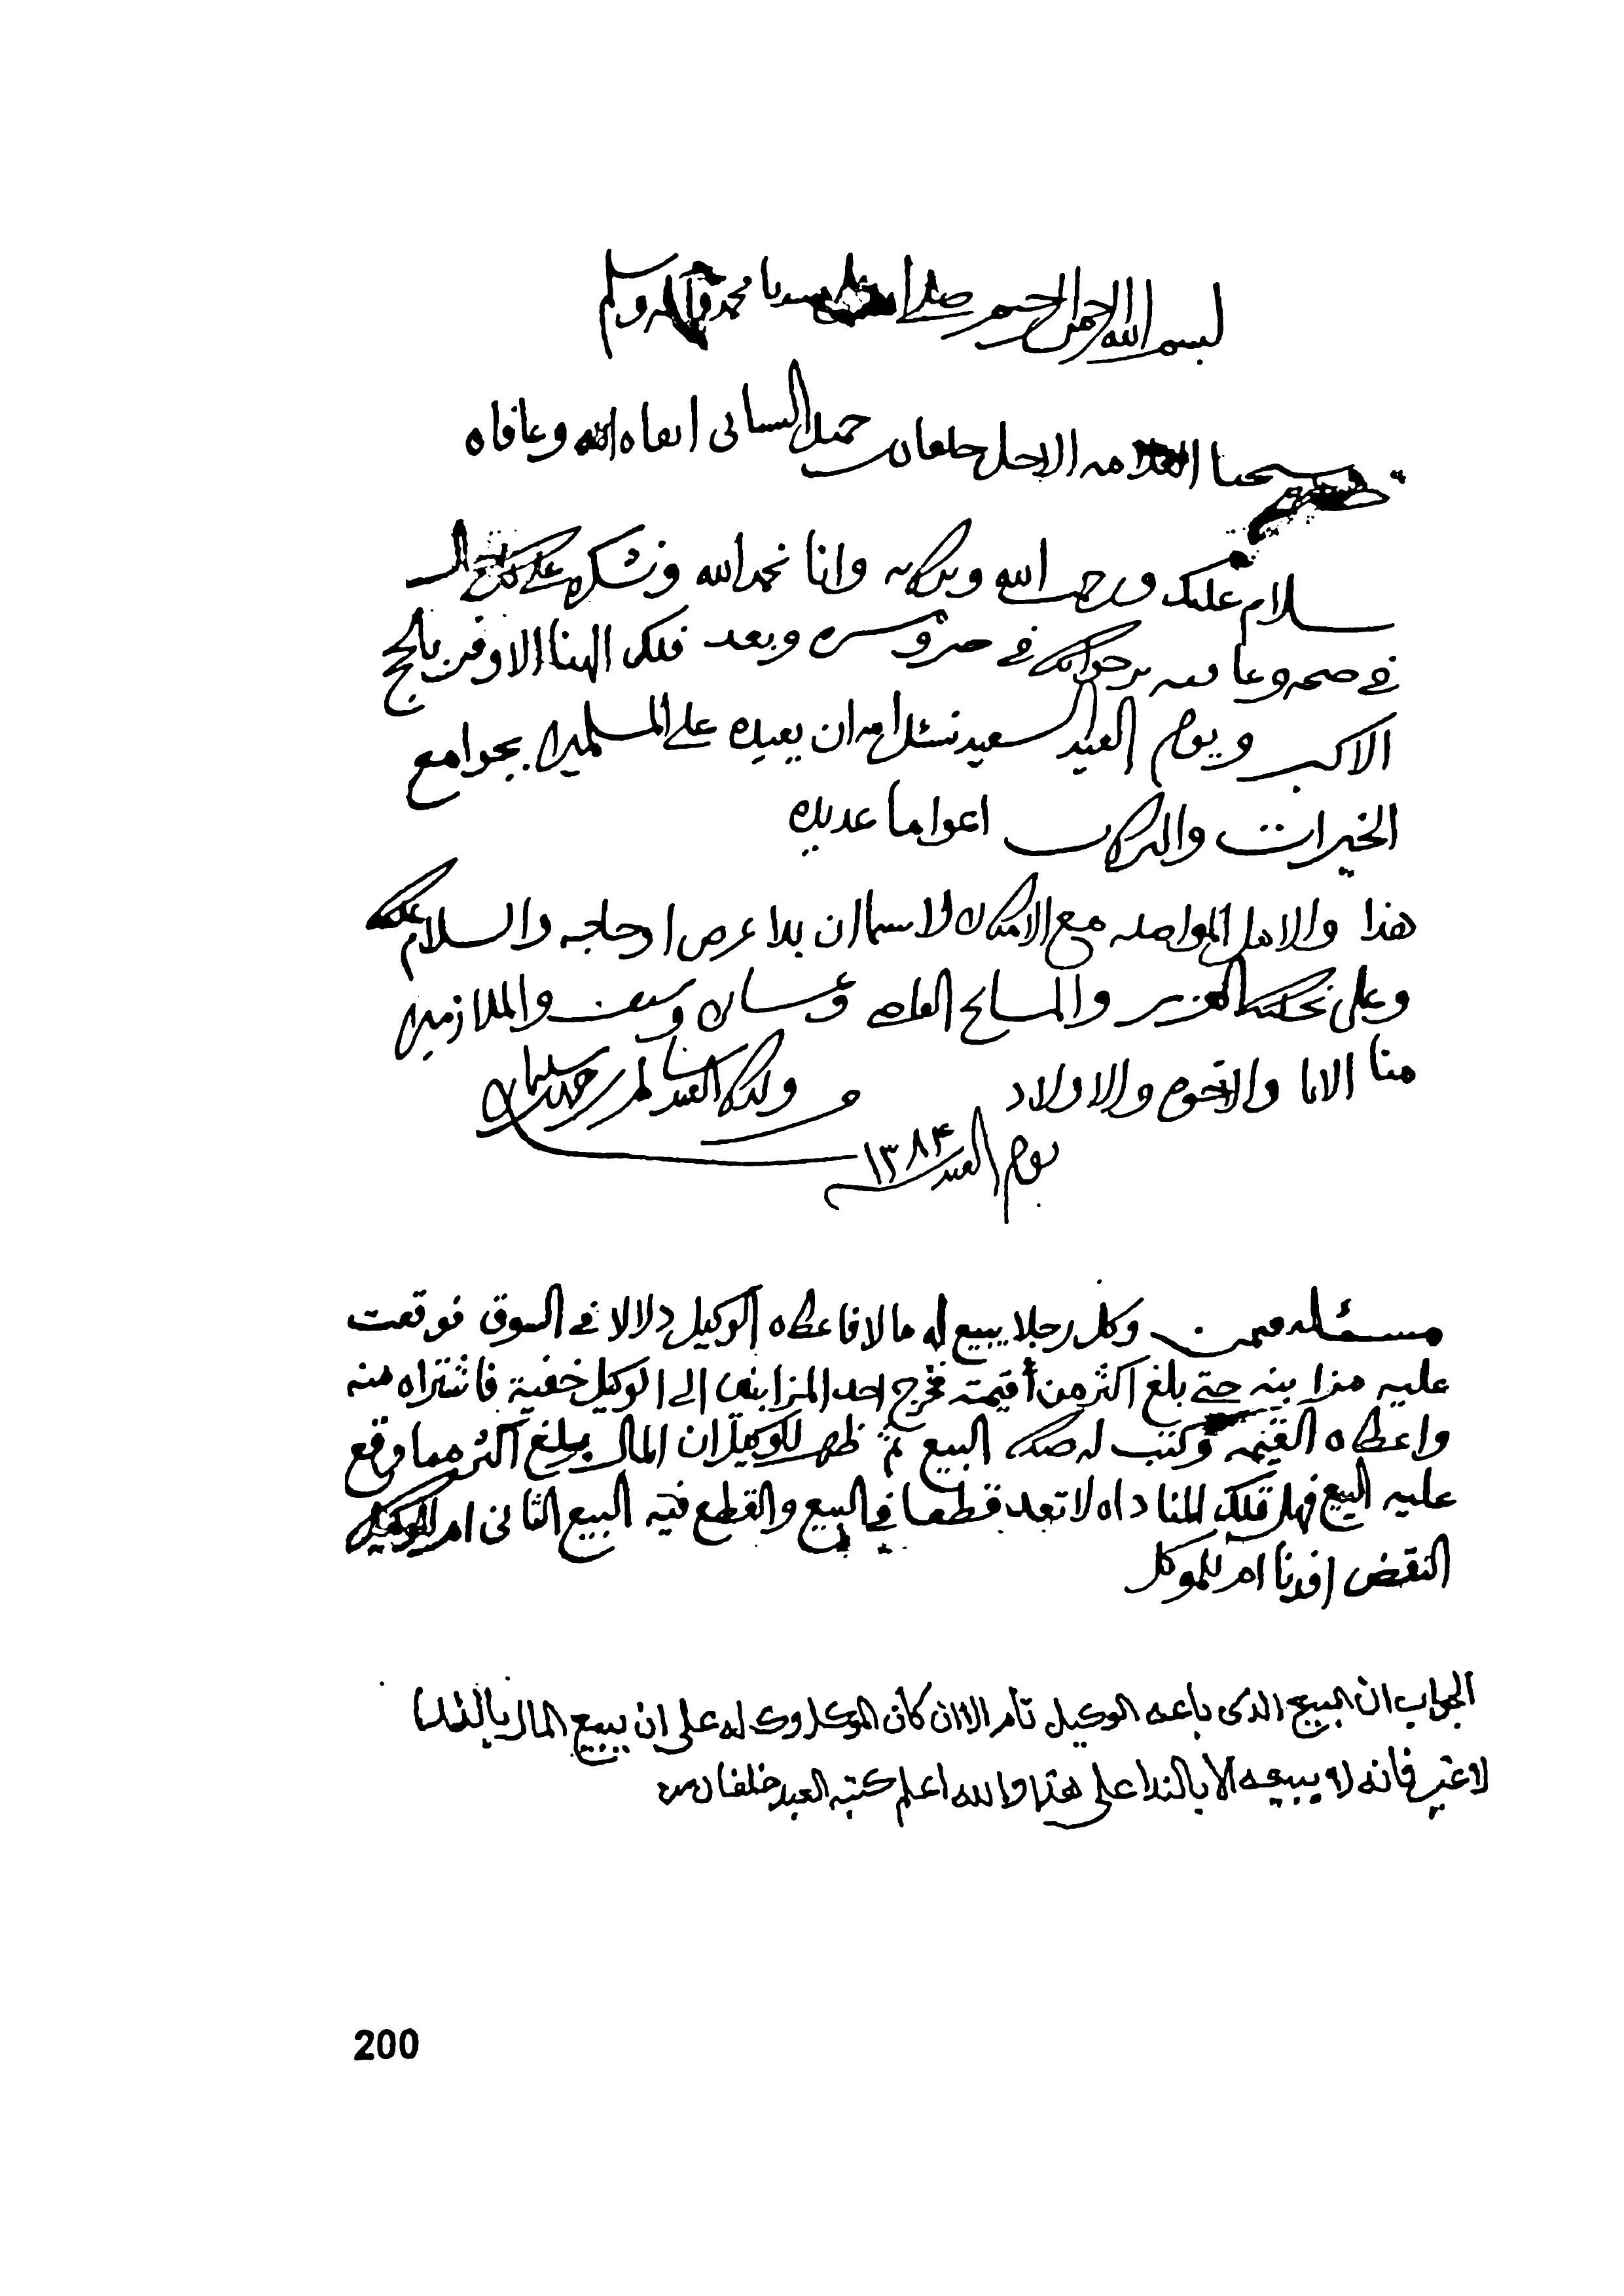 بسم الله الرحمن الرحيم صلى الله على سيدنا محمد وآله وسلم
شيخنا العلامه الاجل خلفان جميل السيابى ابقاه الله وعافاه
سلام عليك ورحمت الله وبركاته وانا نحمد الله ونشكره على
في صحه وعافيه نرجوانك في وبعد فلك الهنا الاوفر بالحج
الاكبر ويوم العيد السعيد نسئل الله ان يعيده على المسلمين بجوامع
الخيرات والبركات اعواما عديده
هذا والامل المواصله مع الامكان لاسيما ان بدا غرض او حاجه والسلام عليك
وعلى نجلك العزيز والمسايخ القاضي وغسان وسيف والملازمين
منا الابا والاخوه والاولاد ولدك العبد سالم بن حمد بن سليمان
يوم العيد ١٣٨٤
مسئله فيمن وكل رجلا يبيع له مالا فاعطاه الوكيل دلالا في السوق فوقعت
عليه مزابنه حتى بلغ اكثر من قيمته فخرج احد المزابنين إلى الوكيل خفية فاشتراه منه
واعطاه القيمه وكتب له صك البيع ثم ظهر للوكيل ان المال بلغ اكثر مما وقع
عليه البيع فهل تلك المناداه لا تعد قطعا في البيع والقطع فيه البيع الثانى ام للوكيل
النقض افدنا ام للموكل
الجواب ان البيع الذى باعه الوكيل تام الا ان كان الموكل وكله على ان يبيع المال بالندا
لا غير فانه لا يبيعه الا بالندا على هذا والله اعلم كتبه العبد خلفان
200